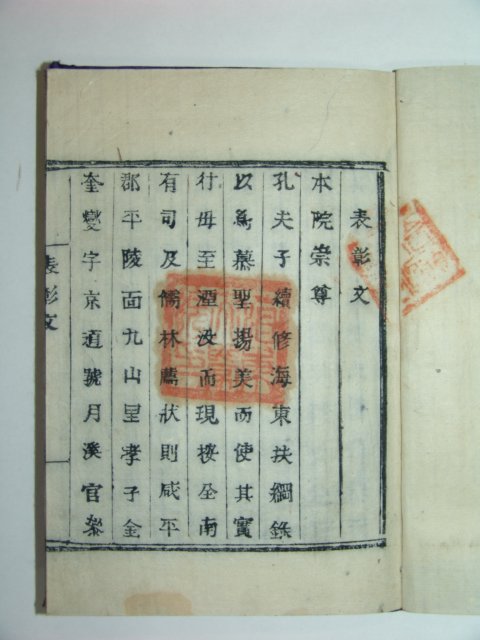 表彰文
本院崇尊
孔夫子續修海東扶綱錄
以爲慕聖揚美而使其實
行毋至湮沒而現按全南
有司及儒林薦狀則咸平
郡平陵面九山里孝子金
奎變字京道號月溪官參
表彰文